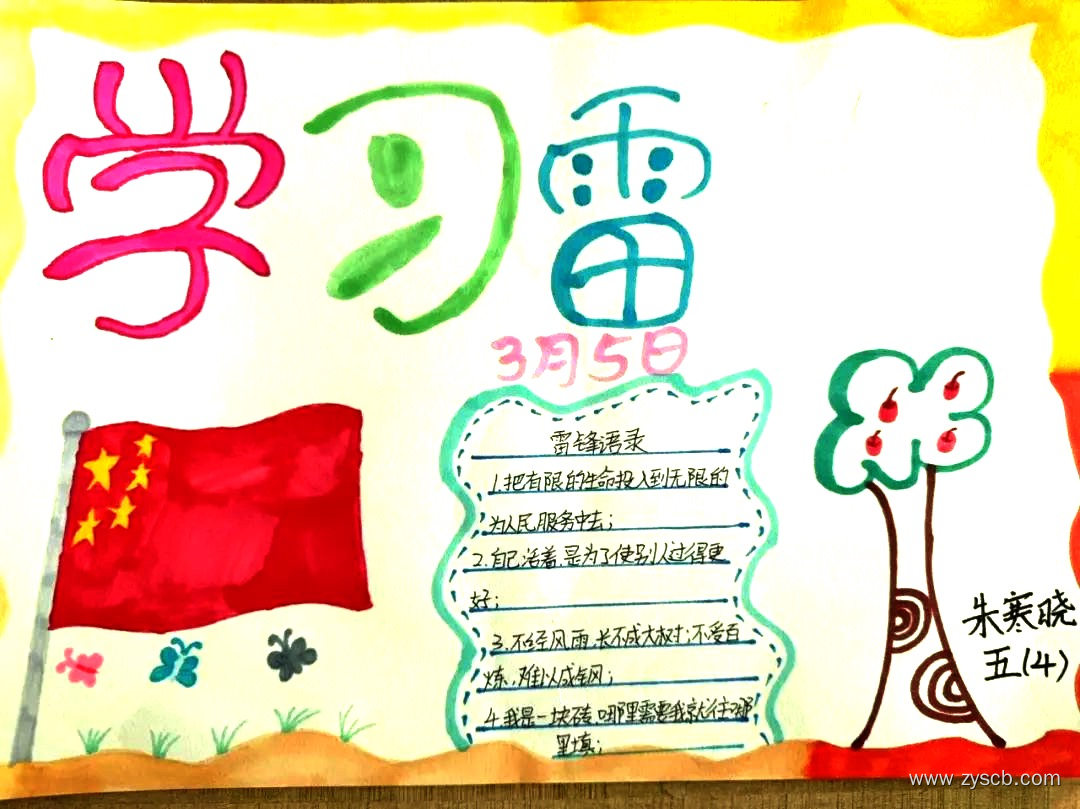 学习雷
3月5日
雷锋语录
1.把有限的生命投入到无限的
为人民服务中去;
2.自己活着,是为了使别人过得更
好;
3.不经风雨,长不成大树;不受百
炼,难以成钢;
4.我是一块砖,哪里需要我就往哪
里填;
朱寒晓
五(4)
www.zyscb.com